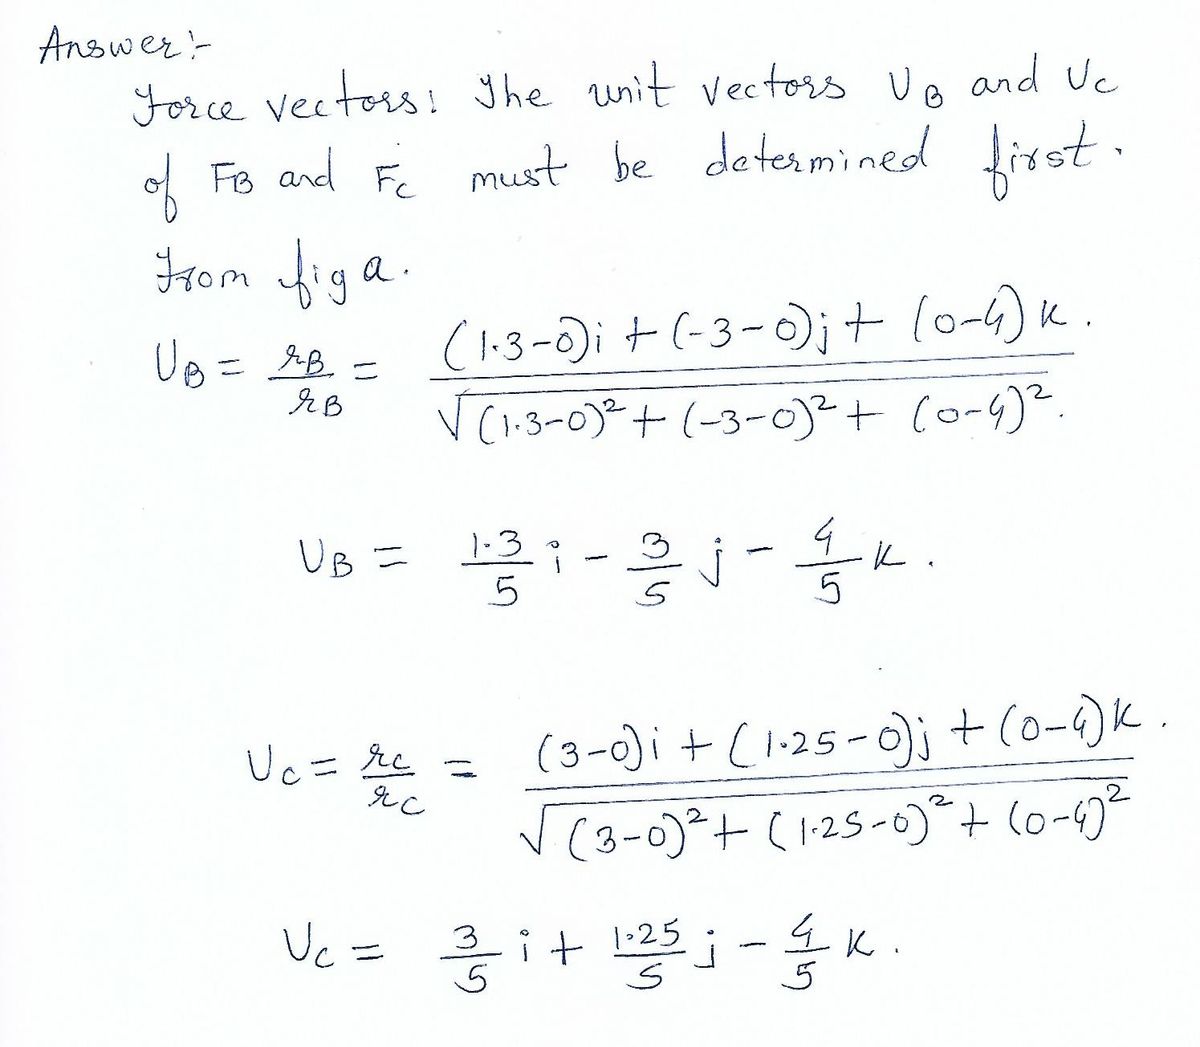 Answer:-
Force vectors: The unit vectors UB and UC
of FB and FC must be determined first.
From fig a.
UB = rB/rB = ((1.3-0)i + (-3-0)j + (0-4)k.)/(√(1.3-0)² + (-3-0)² + (0-4)².)
UB = 1.3/5 i - 3/5 j - 4/5 k.
UC = rC/rC = ((3-0)i + (1.25-0)j + (0-4)k.)/(√(3-0)² + (1.25-0)² + (0-4)²)
UC = 3/5 i + 1.25/5 j - 4/5 k.